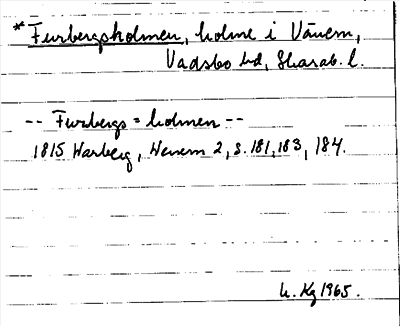 * Furbergsholmen, holme i Vänern,
Vadsbo hd, Skarab. l.
-- Furbergs=holmen --
1815 Warberg, Wenern 2, s. 181, 183, 184.
h. Kg 1965.